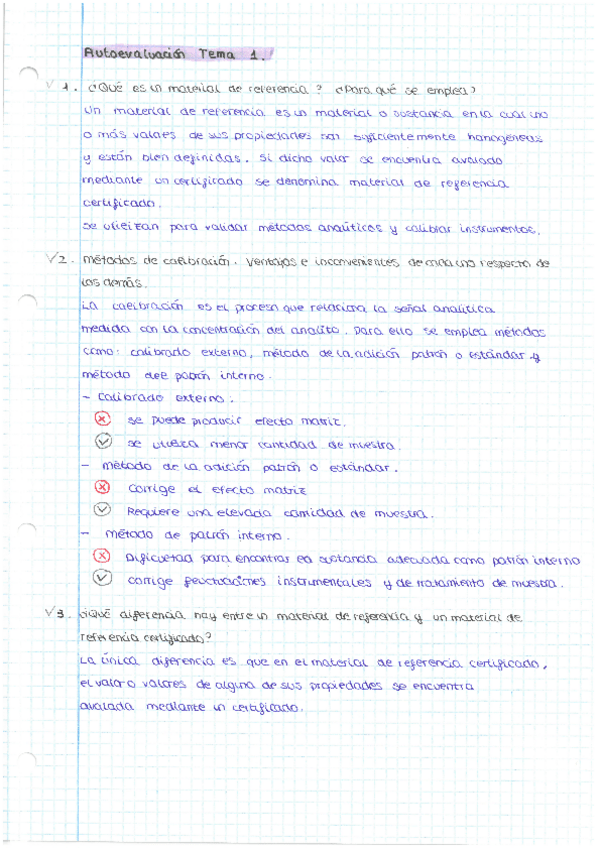 Autoevaluación Tema 1.
1. ¿Qué es un material de referencia? ¿Para qué se emplea?
Un material de referencia es un material o sustancia en la cual uno
o más valores de sus propiedades son suficientemente homogéneas
y están bien definidas. Si dicho valor se encuentra avalado
mediante un certificado se denomina material de referencia
certificado.
Se utilizan para validar métodos analíticos y calibrar instrumentos.
2. Métodos de calibración. Ventajas e inconvenientes de cada uno respecto de
los demás.
La calibración es el proceso que relaciona la señal analítica
medida con la concentración del analito. Para ello se emplea métodos
como: calibrado externo, método de la adición patrón o estándar y
método del patrón interno.
- Calibrado externo.
Se puede producir efecto matriz.
Se utiliza menor cantidad de muestra.
- Método de la adición patrón o estándar.
Corrige el efecto matriz
Requiere una elevada cantidad de muestra.
- Método de patrón interno.
Dificultad para encontrar la sustancia adecuada como patrón interno
Corrige fluctuaciones instrumentales y de tratamiento de muestra.
3. ¿Qué diferencia hay entre un material de referencia y un material de
referencia certificado?
La única diferencia es que en el material de referencia certificado,
el valor o valores de alguna de sus propiedades se encuentra
avalada mediante un certificado.